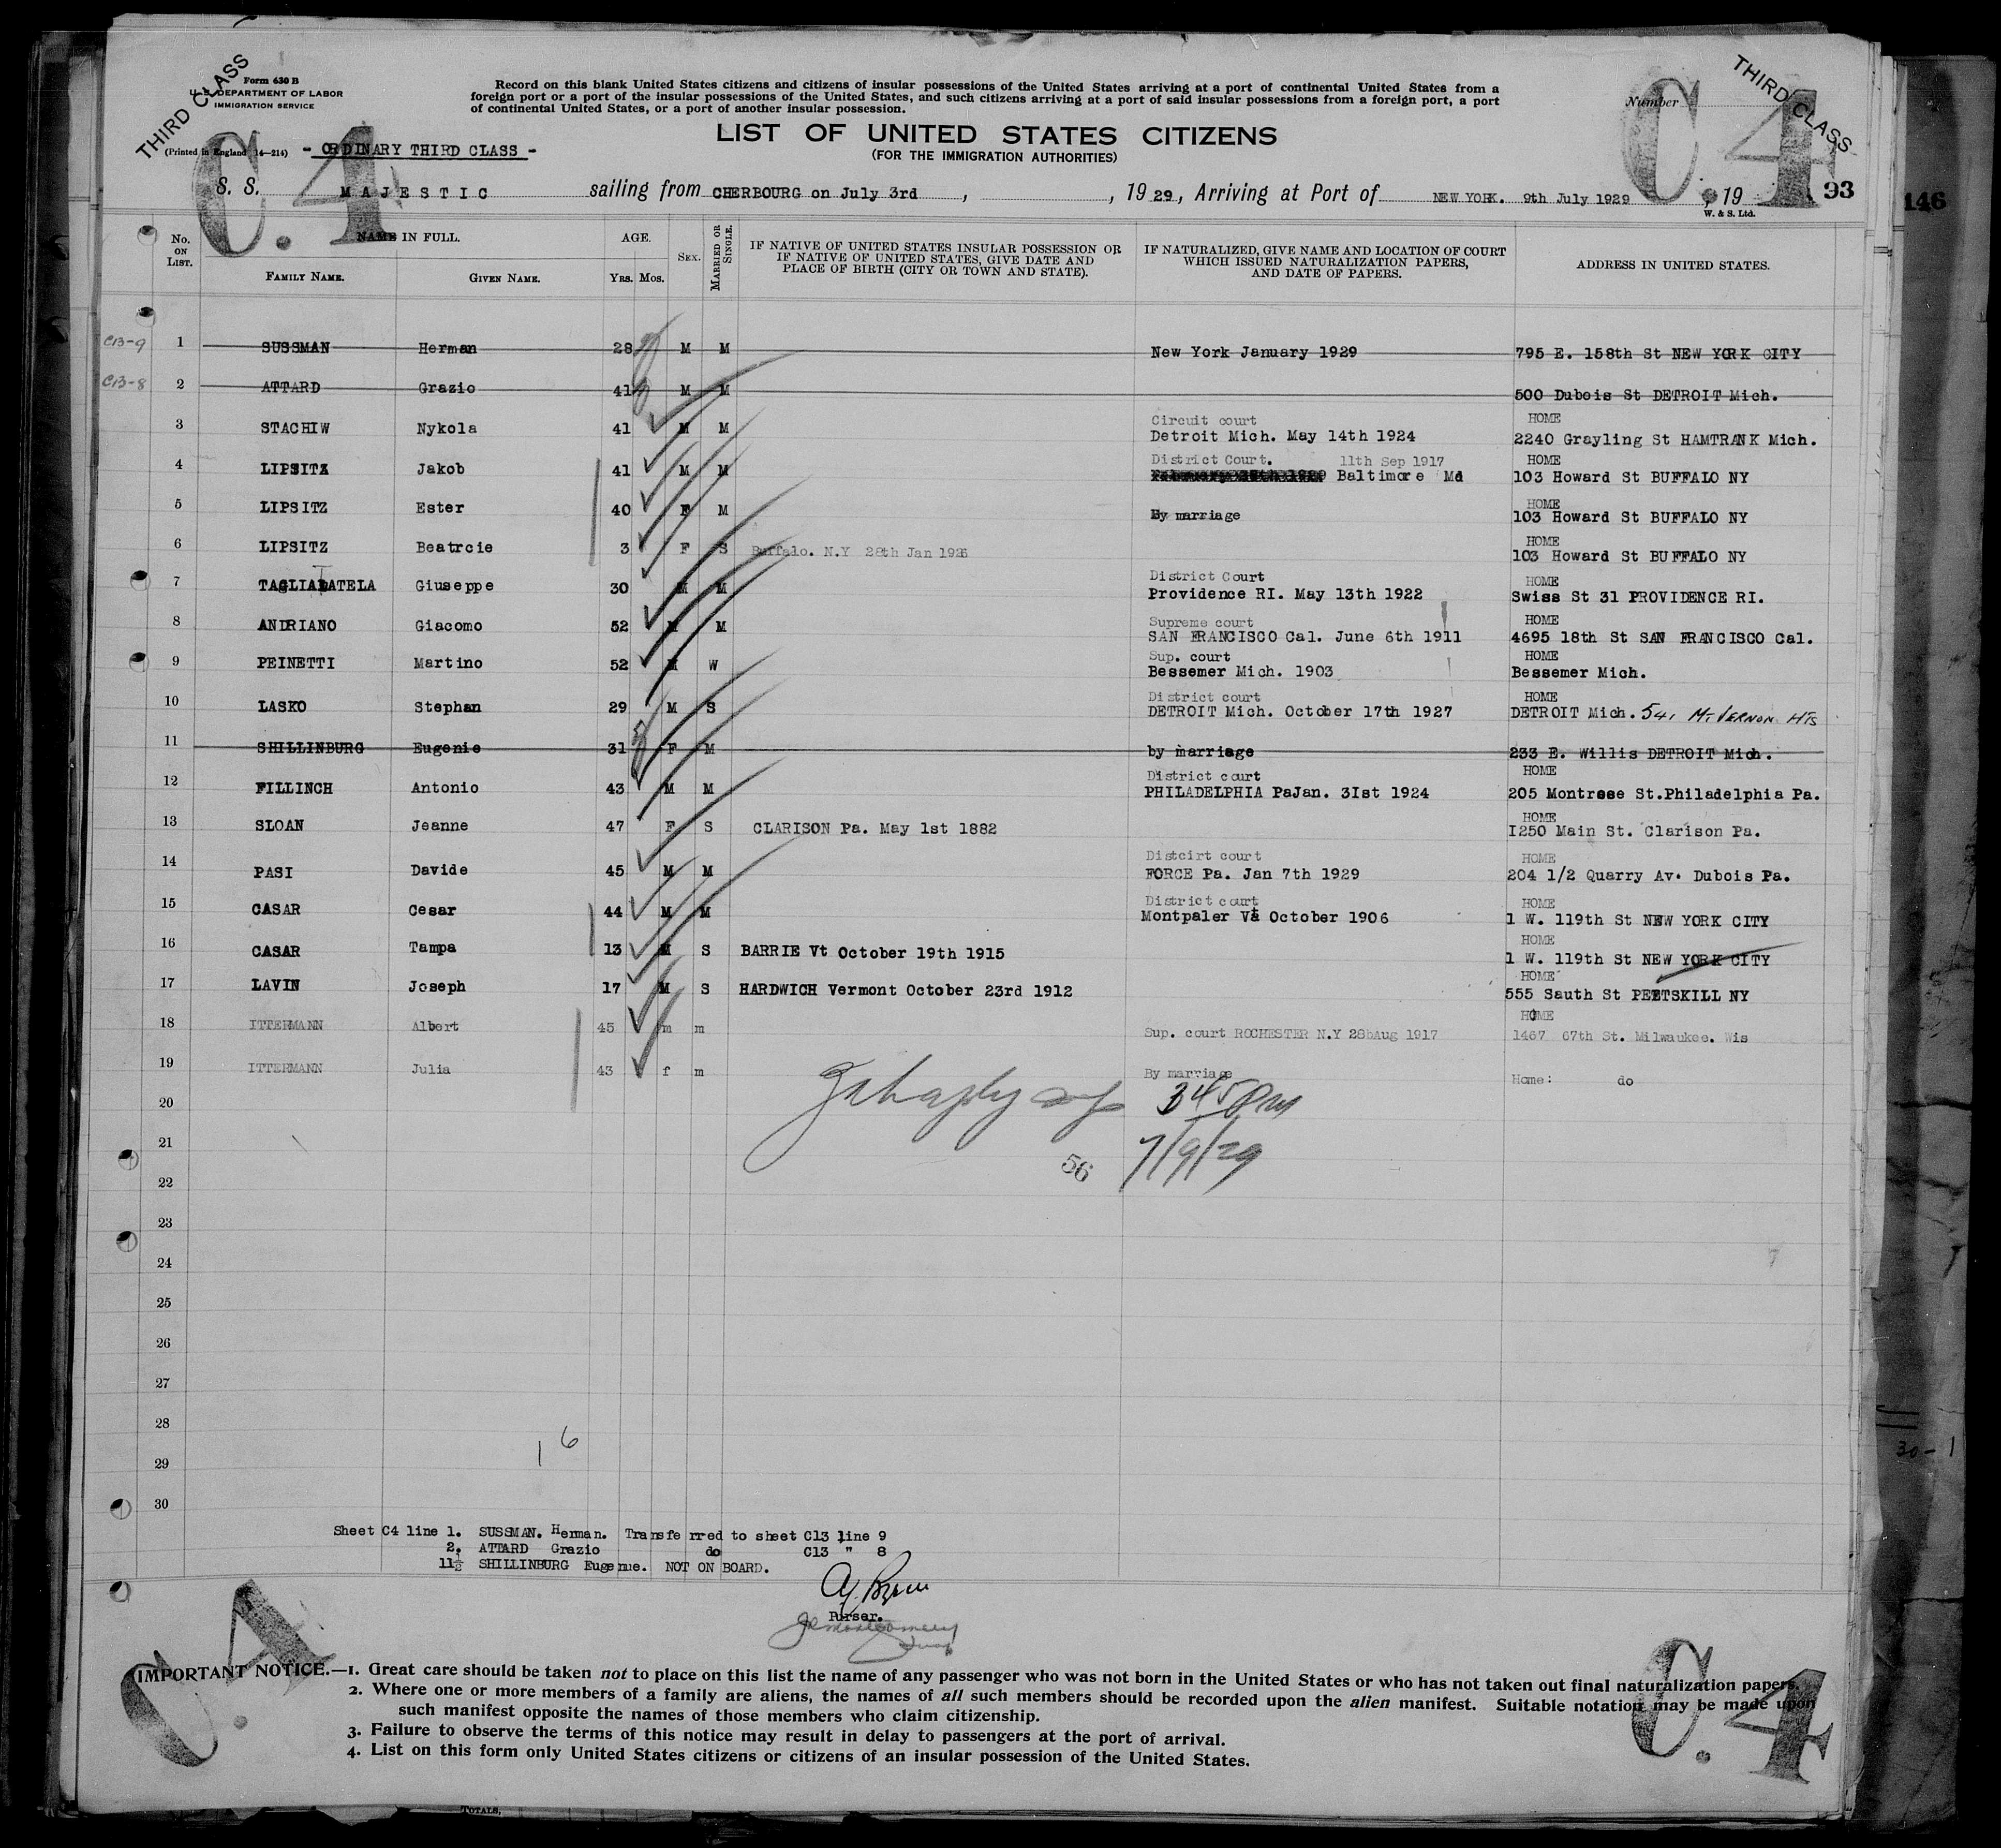 THIRD CLASS
Form 630 B
U. S. DEPARTMENT OF LABOR
IMMIGRATION SERVICE
(Printed in England 14—214)
C.4
- ORDINARY THIRD CLASS -
Record on this blank United States citizens and citizens of insular possessions of the United States arriving at a port of continental United States from a
foreign port or a port of the insular possessions of the United States, and such citizens arriving at a port of said insular possessions from a foreign port, a port
of continental United States, or a port of another insular possession.
LIST OF UNITED STATES CITIZENS
(FOR THE IMMIGRATION AUTHORITIES)
Number
THIRD CLASS
C.4
S. S. MAJESTIC sailing from CHERBOURG on July 3rd , , 19 29, Arriving at Port of NEW YORK. 9th July 1929 , 19
93
146
W. & S. Ltd.
No. ON LIST.
NAME IN FULL.
FAMILY NAME. GIVEN NAME.
AGE.
Yrs. Mos.
SEX.
MARRIED OR SINGLE.
IF NATIVE OF UNITED STATES INSULAR POSSESSION OR
IF NATIVE OF UNITED STATES, GIVE DATE AND
PLACE OF BIRTH (CITY OR TOWN AND STATE).
IF NATURALIZED, GIVE NAME AND LOCATION OF COURT
WHICH ISSUED NATURALIZATION PAPERS,
AND DATE OF PAPERS.
ADDRESS IN UNITED STATES.
C13-9 1 SUSSMAN Herman 28 M M New York January 1929 795 E. 158th St NEW YORK CITY
C13-8 2 ATTARD Grazio 41 M M 500 Dubois St DETROIT Mich.
Circuit court HOME
3 STACHIW Nykola 41 M M Detroit Mich. May 14th 1924 2240 Grayling St HAMTRANK Mich.
District Court. 11th Sep 1917 HOME
4 LIPSITZ Jakob 41 M M Baltimore Md 103 Howard St BUFFALO NY
HOME
5 LIPSITZ Ester 40 F M By marriage 103 Howard St BUFFALO NY
HOME
6 LIPSITZ Beatrcie 3 F S Buffalo. N.Y 28th Jan 1926 103 Howard St BUFFALO NY
District Court HOME
7 TAGLIALATELA Giuseppe 30 M M Providence RI. May 13th 1922 Swiss St 31 PROVIDENCE RI.
Supreme court HOME
8 ANDRIANO Giacomo 52 M M SAN FRANCISCO Cal. June 6th 1911 4695 18th St SAN FRANCISCO Cal.
Sup. court HOME
9 PEINETTI Martino 52 M W Bessemer Mich. 1903 Bessemer Mich.
District court HOME
10 LASKO Stephan 29 M S DETROIT Mich. October 17th 1927 DETROIT Mich. 541 Mt VERNON Hts
11 SHILLINBURG Eugenie 31 F M by marriage 233 E. Willis DETROIT Mich.
District court HOME
12 FILLINCH Antonio 43 M M PHILADELPHIA PaJan. 3Ist 1924 205 Montrose St.Philadelphia Pa.
HOME
13 SLOAN Jeanne 47 F S CLARISON Pa. May 1st 1882 I250 Main St. Clarison Pa.
Distcirt court HOME
14 PASI Davide 45 M M FORCE Pa. Jan 7th 1929 204 1/2 Quarry Av. Dubois Pa.
District court HOME
15 CASAR Cesar 44 M M Montpaler Vt October 1906 1 W. 119th St NEW YORK CITY
HOME
16 CASAR Tampa 13 M S BARRIE Vt October 19th 1915 1 W. 119th St NEW YORK CITY
HOME
17 LAVIN Joseph 17 M S HARDWICH Vermont October 23rd 1912 555 Sauth St PEETSKILL NY
HOME
18 ITTERMANN Albert 45 m m Sup. court ROCHESTER N.Y 28bAug 1917 1467 67th St. Milwaukee. Wis
19 ITTERMANN Julia 43 f m By marriage Home: do
20 3 45 PM
21 7/9/29
56
22
23
24
25
26
27
28
16
29
30
30-1
Sheet C4 line 1. SUSSMAN. Herman. Transferred to sheet C13 line 9
2. ATTARD Grazio do C13 " 8
11. SHILLINBURG Eugenue. NOT ON BOARD.
Purser.
C.4
C.4
IMPORTANT NOTICE.—1. Great care should be taken not to place on this list the name of any passenger who was not born in the United States or who has not taken out final naturalization papers.
2. Where one or more members of a family are aliens, the names of all such members should be recorded upon the alien manifest. Suitable notation may be made upon
such manifest opposite the names of those members who claim citizenship.
3. Failure to observe the terms of this notice may result in delay to passengers at the port of arrival.
4. List on this form only United States citizens or citizens of an insular possession of the United States.
TOTALS,